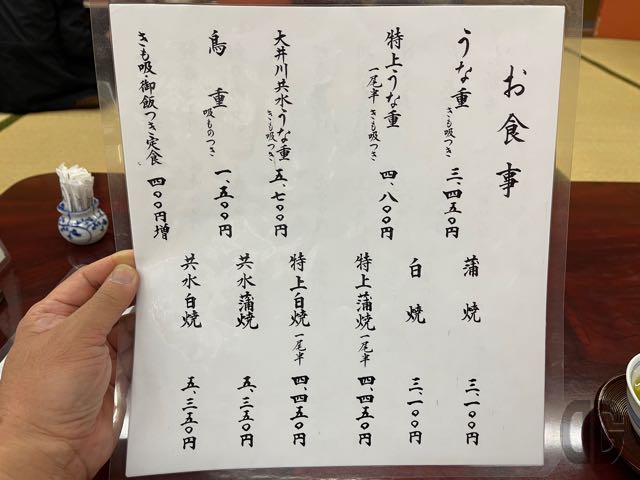 お食事
うな重 きも吸つき 三、四五〇円
特上うな重 一尾半 きも吸つき 四、八〇〇円
大井川共水うな重 きも吸つき 五、七〇〇円
鳥重 吸ものつき 一、五〇〇円
きも吸御飯つき定食 四〇〇円増
蒲焼 三、一〇〇円
白焼 三、一〇〇円
特上蒲焼 一尾半 四、四五〇円
特上白焼 一尾半 四、四五〇円
共水蒲焼 五、三五〇円
共水白焼 五、三五〇円